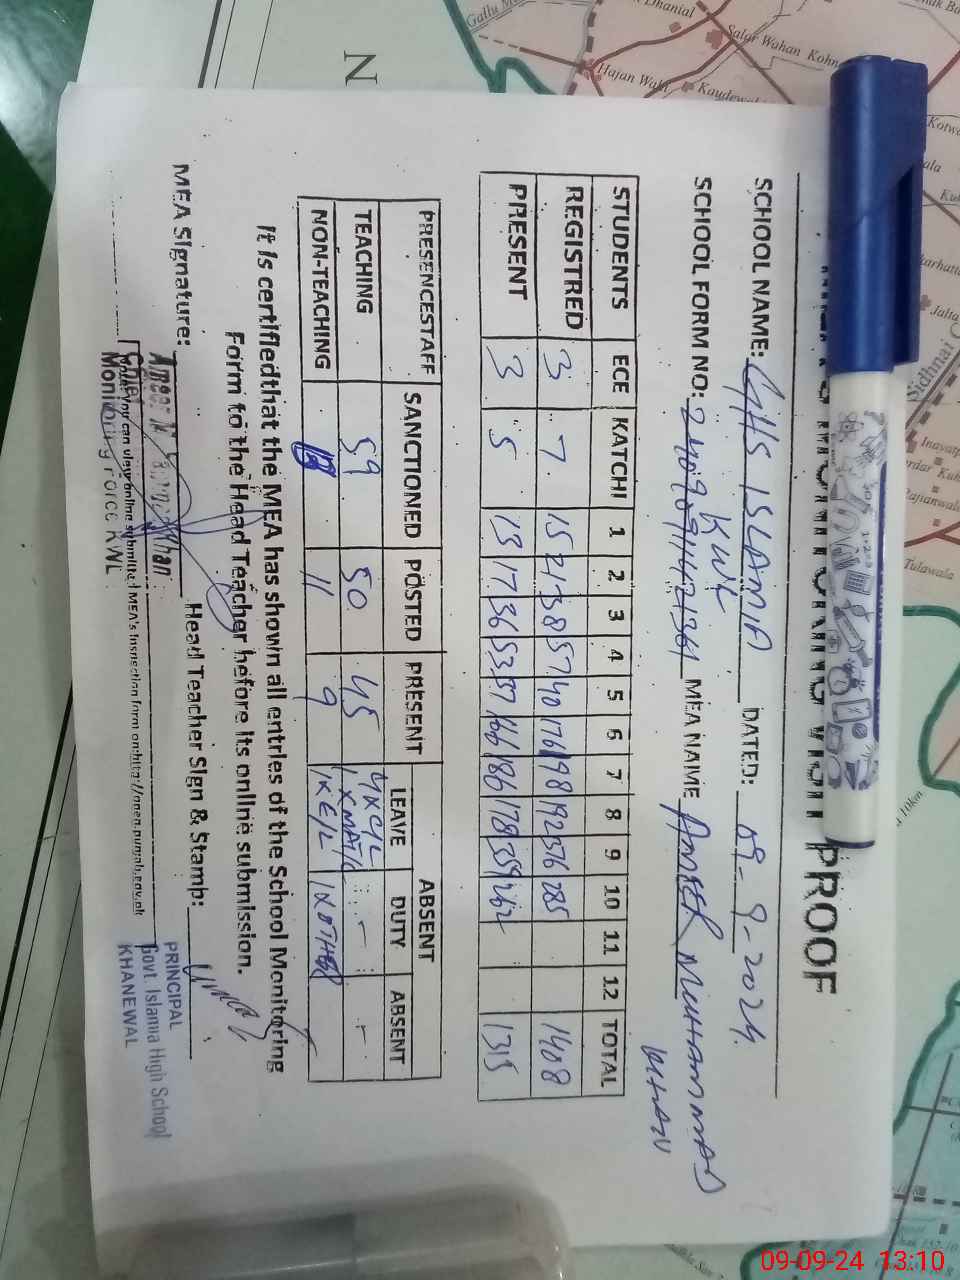 PROOF
SCHOOL NAME: GHS ISLAMIA KWL DATED: 09-9-2024
SCHOOL FORM NO: MEA NAME AMEER MUHAMMAD KHAN
STUDENTS ECE KATCHI 1 2 3 4 5 6 7 8 9 10 11 12 TOTAL
REGISTRED 3 7 15 21 38 57 40 176 198 192 376 285 1408
PRESENT 3 5 13 17 36 53 37 166 186 178 359 262 1315
PRESENCESTAFF SANCTIONED POSTED PRESENT ABSENT
LEAVE DUTY ABSENT
TEACHING 59 50 45 4XC/L 1XMAT/L - -
NON-TEACHING 11 9 1XE/L 1XOTHER
It is certifiedthat the MEA has shown all entries of the School Monitoring
Form to the Head Teacher before its online submission.
MEA Signature: Head Teacher Sign & Stamp:
Ameer M Khan
Monitoring Force KWL
you can view online submitted MEA's Inspection form on:http://open.punjab.gov.pk
PRINCIPAL
Govt. Islamia High School
KHANEWAL
N
Dhanial
Salar Wahan Kohn
Hajan Wali
Kotwa
Jalla
Sidhnai
Tulawala
10km
09-09-24 13:10